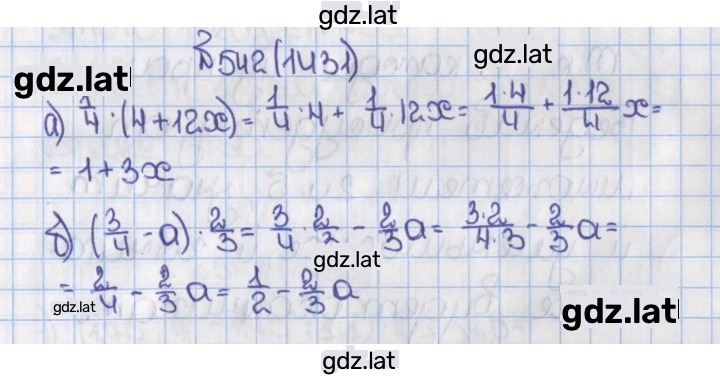 gdz.lat
№542(1431)
gdz.lat
gdz.lat
а) 1/4 · (4 + 12x) = 1/4 · 4 + 1/4 · 12x = 1·4/4 + 1·12/4 x =
= 1 + 3x
б) (3/4 - a) · 2/3 = 3/4 · 2/3 - 2/3 a = 3·2/4·3 - 2/3 a =
gdz.lat
= 2/4 - 2/3 a = 1/2 - 2/3 a
gdz.lat
gdz.lat
gdz.lat